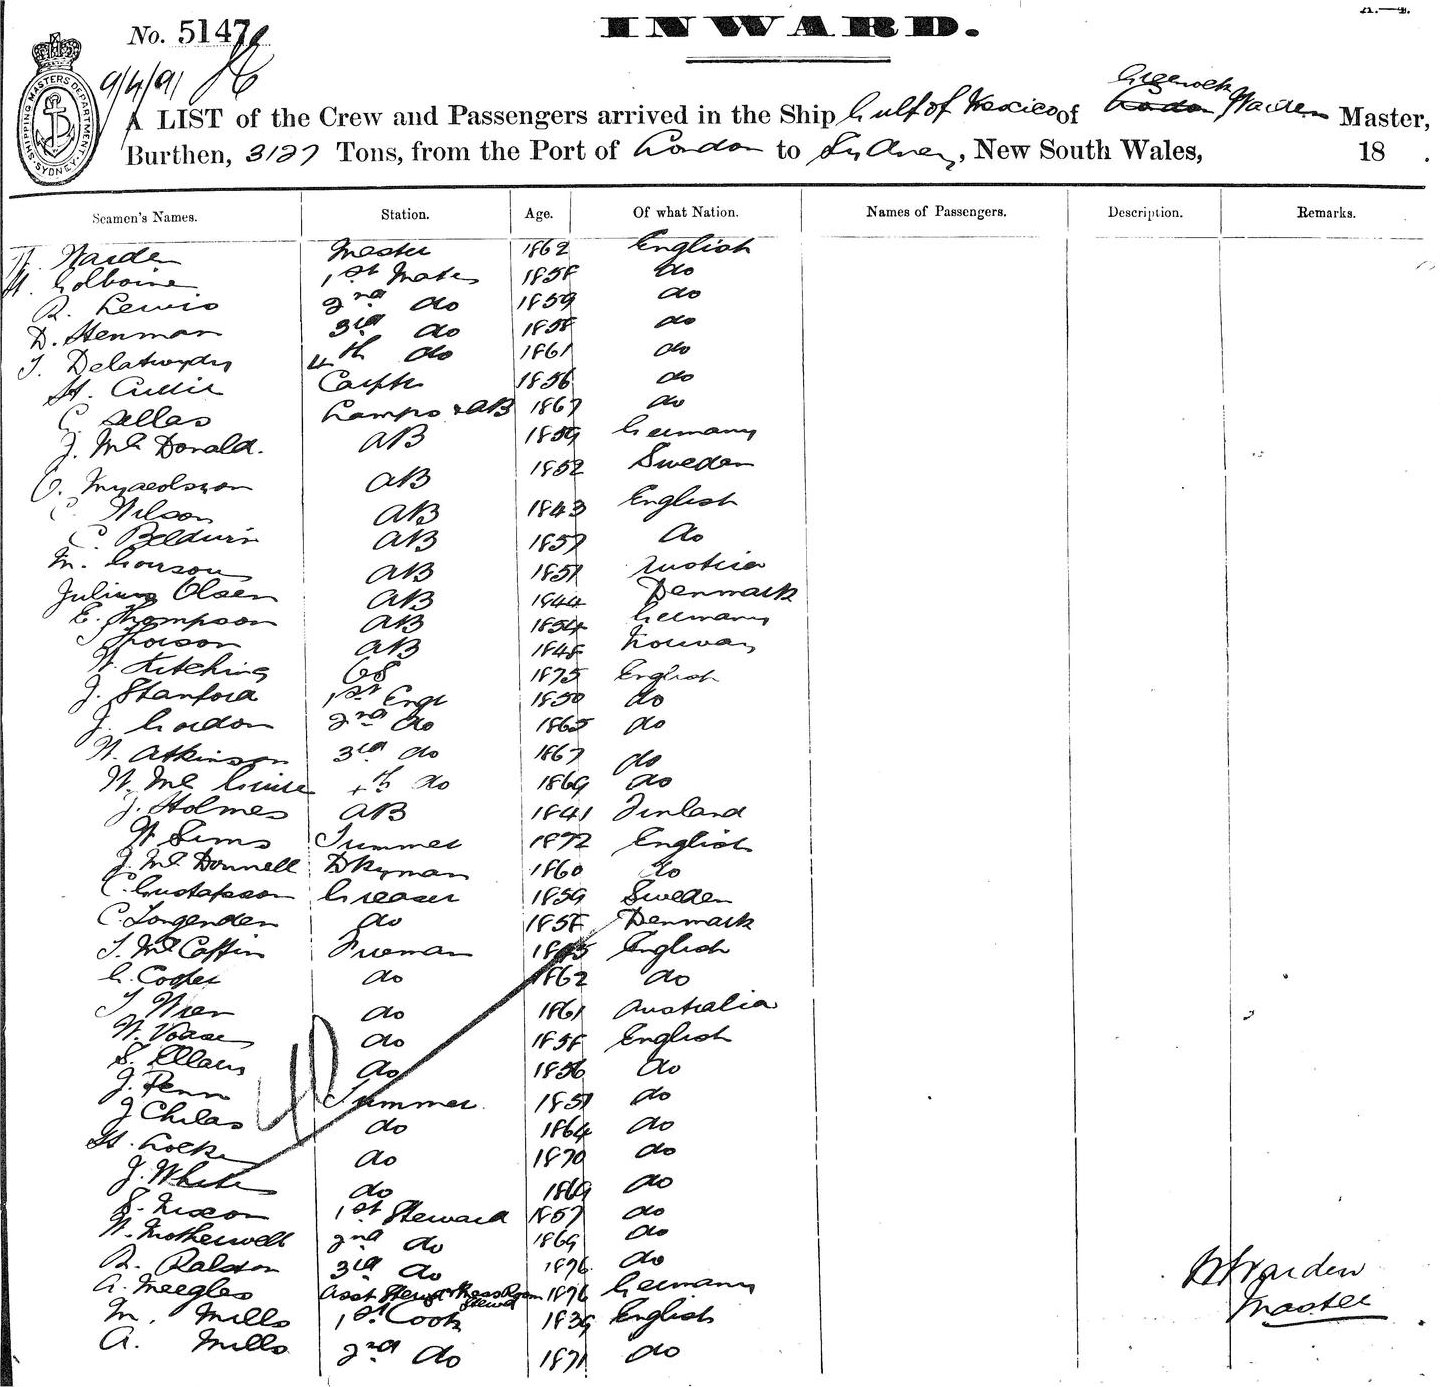 INWARD.
No. 5147
9/4/91
SHIPPING MASTERS DEPARTMENT SYDNEY
Greenock
A LIST of the Crew and Passengers arrived in the Ship Gulf of Mexico of London Warden Master,
Burthen, 3127 Tons, from the Port of London to Sydney, New South Wales, 18 .
Seamen's Names. Station. Age. Of what Nation. Names of Passengers. Description. Remarks.
W. Warden Master 1862 English
H. Golborne 1st Mate 1858 do
R. Lewis 2nd do 1859 do
D. Stenman 3rd do 1858 do
T. 4th do 1861 do
H. Carptr 1856 do
C. Sellas Lamps & AB 1867 do
J. Mc Donald. AB 1859 Germany
O. AB 1852 Sweden
C. Wilson AB 1843 English
C. Beldwin AB 1857 do
M. AB 1851 Austria
Julius Olsen AB 1844 Denmark
E. Thompson AB 1854 Germany
T AB 1848 Norway
W. Kitching OS 1875 English
J. Stanford 1st Engr 1850 do
J. Gordon 2nd do 1865 do
W. Atkinson 3rd do 1867 do
W. Mc Guire 4th do 1869 do
J. Holmes AB 1841 Finland
W Sims Trimmer 1872 English
J. Mc Donnell Dkyman 1860 do
C. Gustafsson Greaser 1859 Sweden
C. Longenden do 1858 Denmark
T. Mc Caffin Fireman 1845 English
G. Cooper do 1862 do
T Wren do 1861 Australia
W. do 1858 English
S. do 1856 do
J. Penn Trimmer 1851 do
J Childs do 1864 do
H. Locke do 1870 do
J. White do 1869 do
S. Nixon 1st Steward 1857 do
W. Motherwell 2nd do 1869 do
R. Ralston 3rd do 1876 do
A. Meegles Asst Stewd & Mess Room Stewd 1876 Germany
M. Mills 1st Cook 1839 English
A. Mills 2nd do 1871 do
40
W Warden
Master